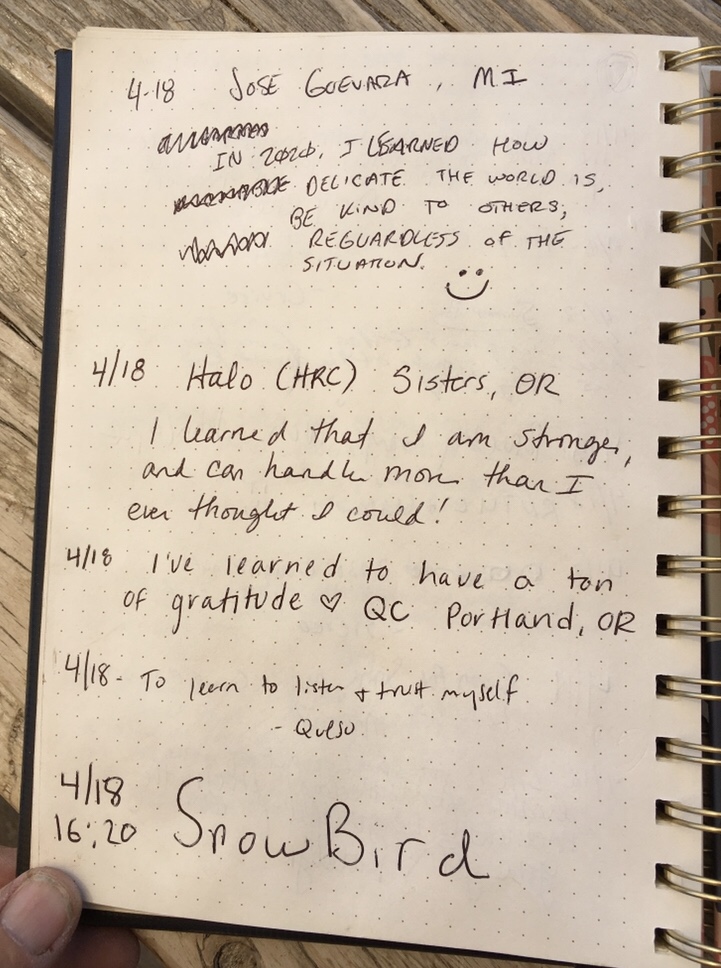 4-18 JOSE GUEVARA, MI
IN 2020, I LEARNED HOW
DELICATE THE WORLD IS,
BE KIND TO OTHERS,
REGUARDLESS OF THE
SITUATION.
4/18 Halo (HRC) Sisters, OR
I learned that I am stronger,
and can handle more than I
ever thought I could!
4/18 I've learned to have a ton
of gratitude ♡ QC Portland, OR
4/18- To learn to listen + trust myself
- Queso
4/18
16:20 SnowBird